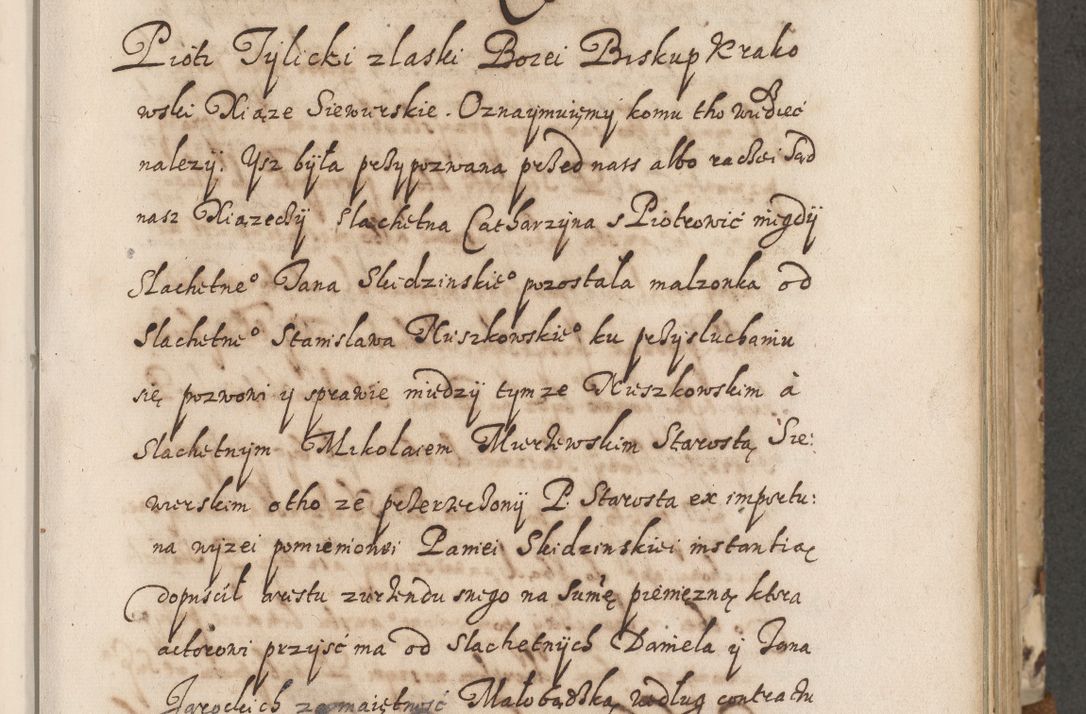 Piotr Tylicki z laski Bozei Biskup Krako
wski Xiąze Siewierskie. Oznaymuięmy komu tho wiedziec
nalezy. Isz była przypozwana przed nass albo raczei Sąd
nasz Xiązęczy slachetna Catharzyna s Piotrowic niegdy
Slachetne° Jana Skidzinskie° pozostala malzonka od
Slachetne° Stanislawa Kuszkowskie° ku przysluchaniu
się pozwowi y sprawie miedzy tymze Kuszkowskim à
Slachetnym Mikolaiem Mierzewskim Starostą Sie:
wierskim o tho ze przerzeczony P. Starosta ex importu:
na wyzei pomienionei Paniei Skidzinskiei instantią
dopuscił arestu zurzendu snego na sumę pieniezną ktora
actorowi przyisć ma od Slachetnych Daniela y Jana
Jarockich za maiętność Małobądzką według contractu